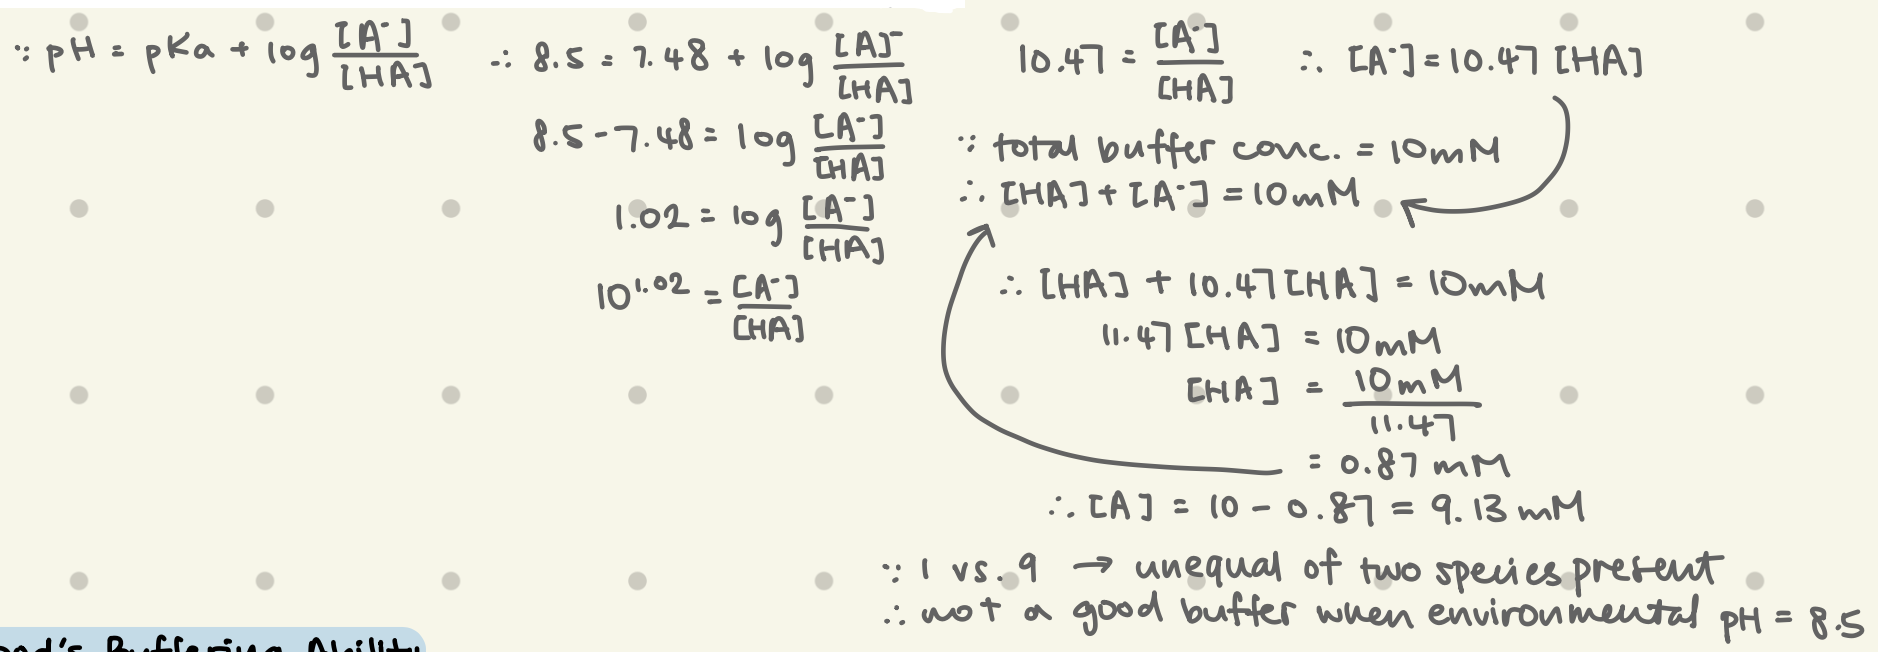 ∵ pH = pKa + log [A⁻]/[HA]
∴ 8.5 = 7.48 + log [A]⁻/[HA]
8.5 - 7.48 = log [A⁻]/[HA]
1.02 = log [A⁻]/[HA]
10^1.02 = [A⁻]/[HA]
10.47 = [A⁻]/[HA] ∴ [A⁻] = 10.47 [HA]
∵ total buffer conc. = 10mM
∴ [HA] + [A⁻] = 10mM
∴ [HA] + 10.47 [HA] = 10mM
11.47 [HA] = 10mM
[HA] = 10mM/11.47
= 0.87 mM
∴ [A] = 10 - 0.87 = 9.13 mM
∵ 1 vs. 9 → unequal of two species present
∴ not a good buffer when environmental pH = 8.5
Buffering Ability